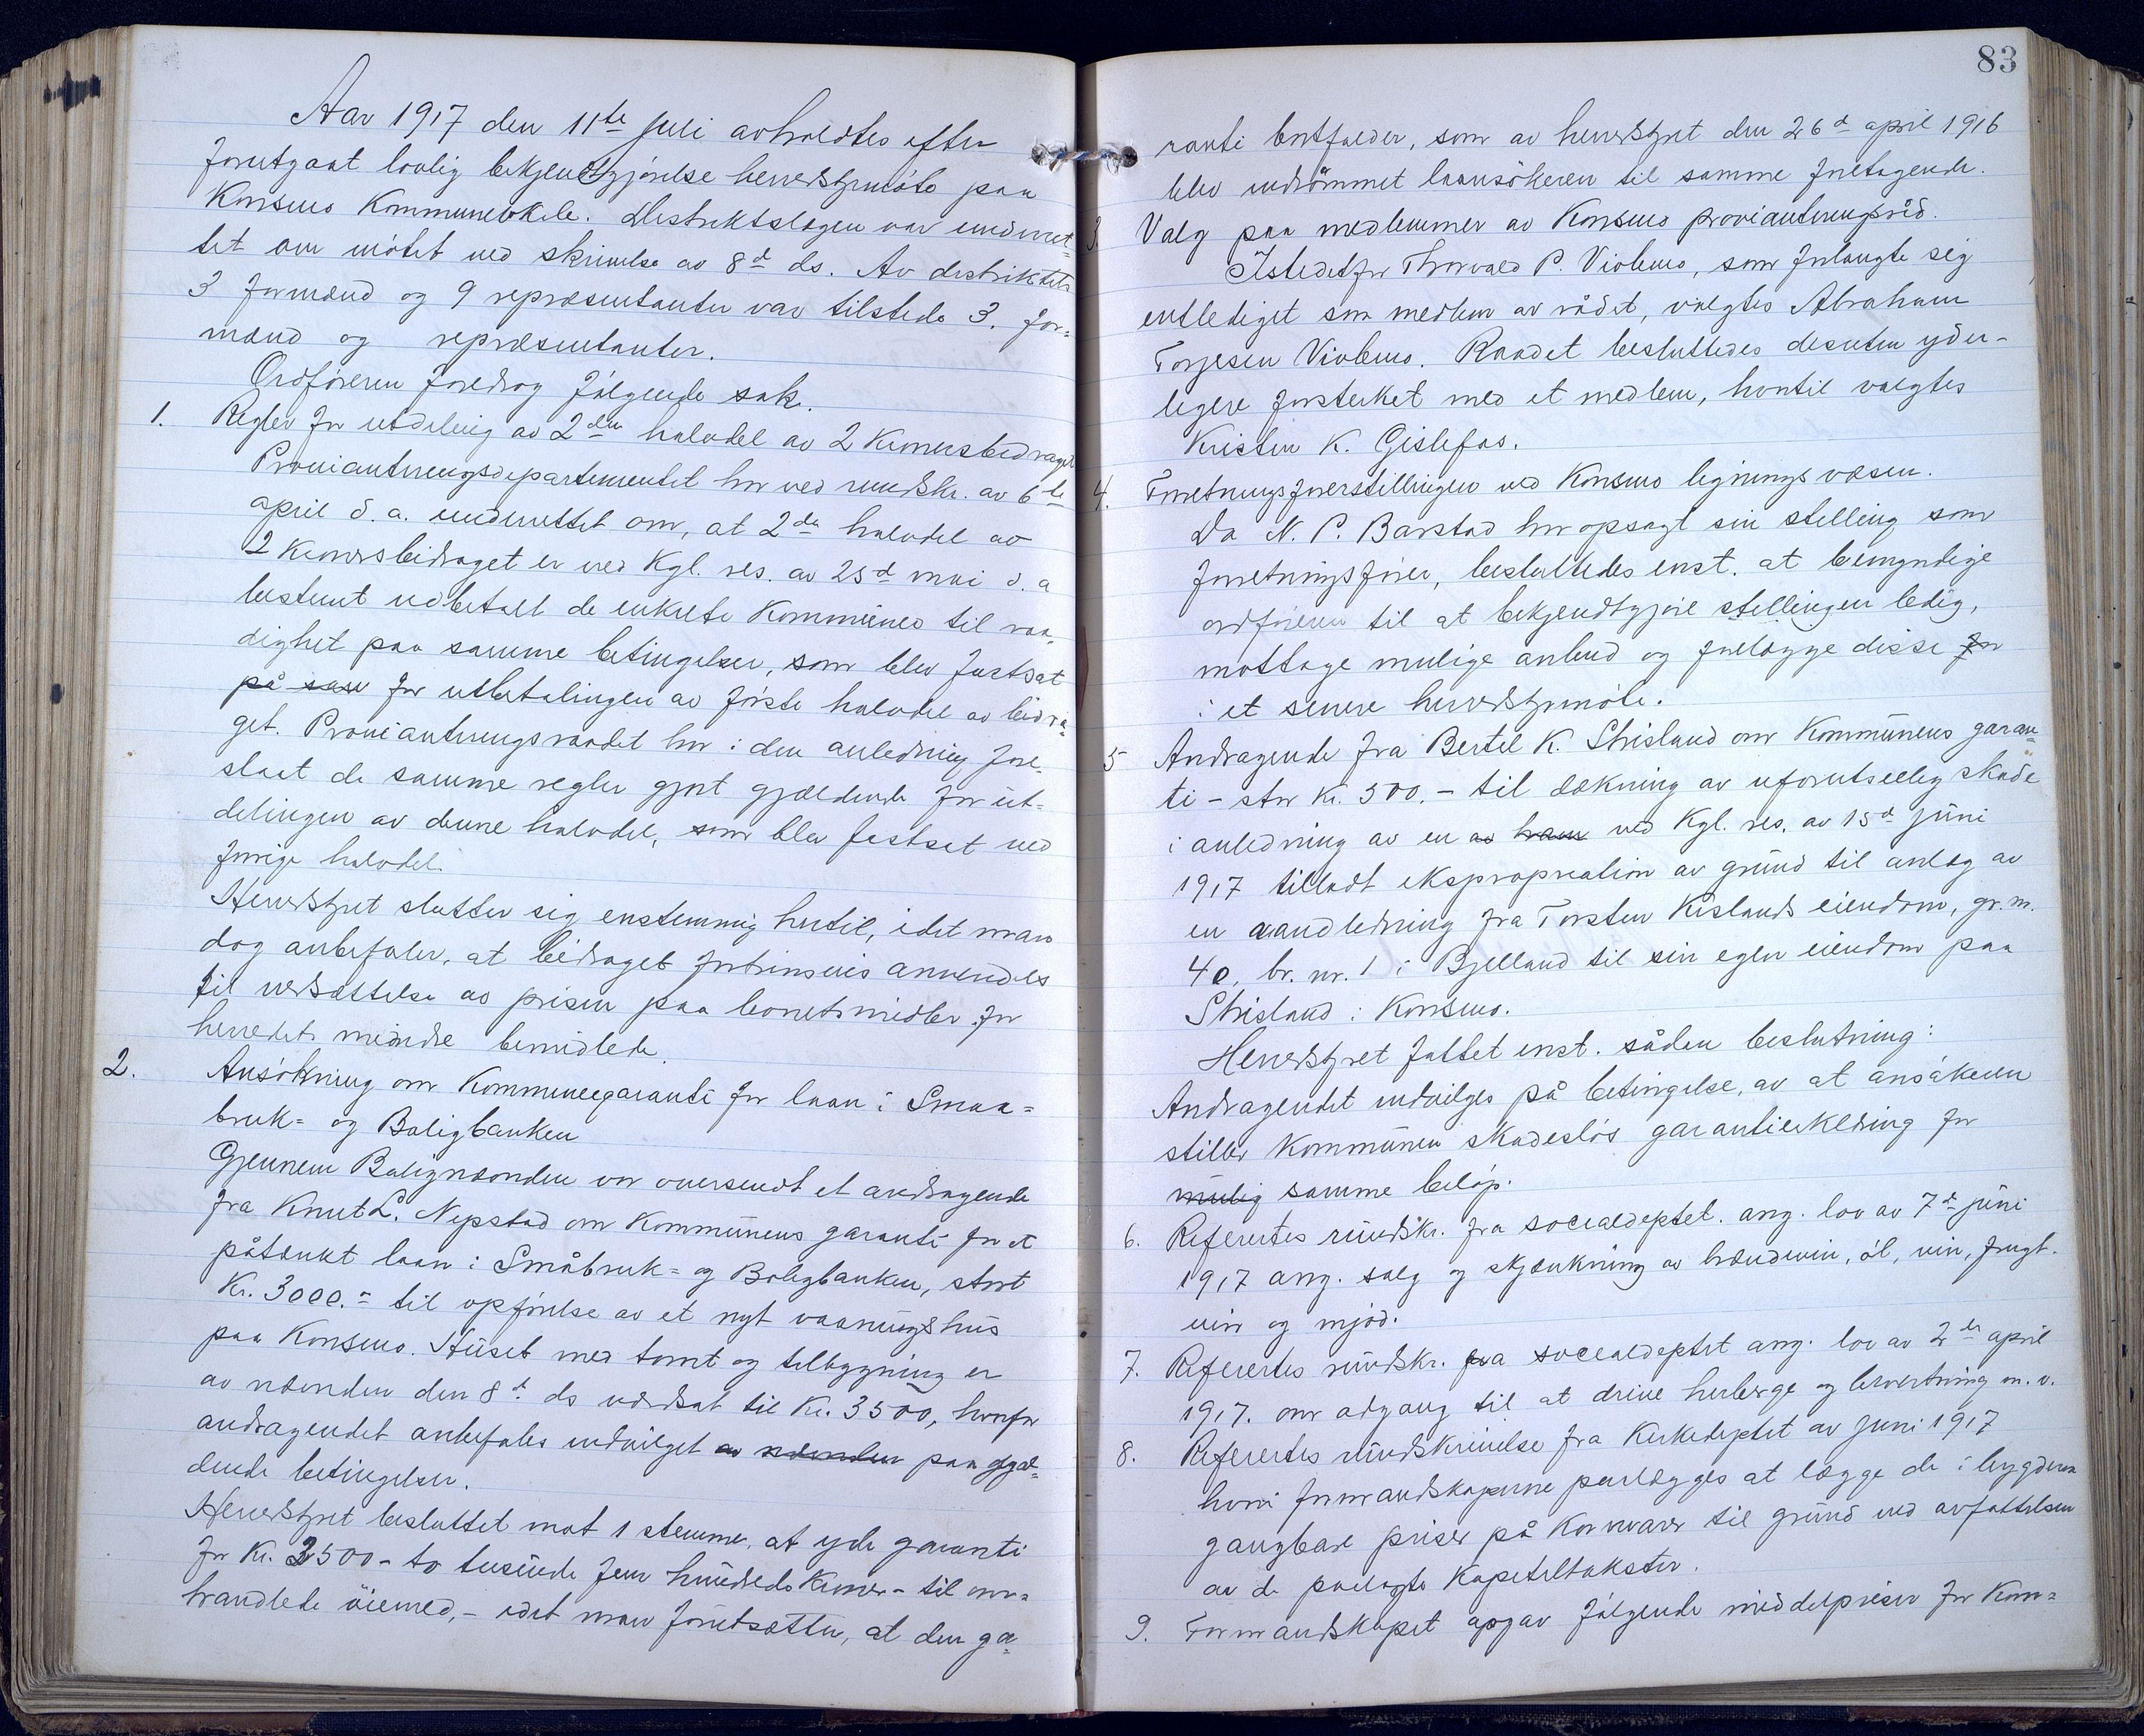 Aar 1917 den 11te juli avholdtes efter
forutgaat lovlig bekjendtgjörelse herredsstyrmöte paa
Konsmo Kommunelokale. Distriktslægen var underret=
tet om mötet ved skrivelse av 8d ds. Av distriktets
3 formænd og 9 repræsentanter var tilstede 3. for=
mænd og repræsentanter.
Ordföreren foredrog fölgende sak.
1. Regler for utdeling av 2den halvdel av 2 kronersbidraget
Provianteringsdepartementet har ved rundskr. av 6te
april d. a. underrettet om, at 2den halvdel av
2 kronersbidraget er ved Kgl. res. av 25d mai d. a
bestemt utbetalt de enkelte Kommuner til raa=
dighet paa samme betingelser, som blev fastsat
på sam for utbetalingen av förste halvdel av bidra=
get. Provianteringsraadet har i den anledning fore=
slaat de samme regler gjort gjældende for ut=
delingen av denne halvdel, som blev festset ved
forrige halvdel.
Herredsstyret slutter sig enstemmig hertil, idet man
dog anbefaler, at bidraget fortrinsvis anvendes
til nedsættelse av prisen paa levnetsmidler for
herredets mindre bemidlede.
2. Ansökning om Kommunegaranti for laan i Smaa=
bruk= og Boligbanken
Gjennem Bolignævnden var oversendt et andragende
fra Knut L. Nepstad om Kommunens garanti for et
påtænkt laan i Småbruk= og Boligbanken, stort
Kr. 3000.- til opförelse av et nyt vaaningshus
paa Konsmo. Huset med tomt og tilbygning er
av nævnden den 8d ds værdsat til Kr. 3500, hvorfor
andragendet anbefales indvilget av nævnden paa gjæl=
dende betingelser.
Herredsstyret besluttet mot 1 stemme, at yde garanti
for Kr. 2500 - to tusinde fem hundrede Kroner - til om=
handlede öiemed, - idet man forutsætter, at den ga=
83
ranti bortfalder, som av herredsstyret den 26d april 1916
blev indrömmet laansökeren til samme foretagende.
3. Valg paa medlemmer av Konsmo provianteringsråd.
Istedetfor Thorvald P. Viblemo, som forlangte sig
entlediget som medlem av rådet, valgtes Abraham
Torjesen Viblemo. Raadet besluttedes desuten yder=
ligere forsterket med et medlem, hvortil valgtes
Kristen K. Gislefos.
4. Forretningsförerstillingen ved Konsmo ligningsvæsen.
Da N. P. Barstad har opsagt sin stilling som
forretningsförer, besluttedes enst. at bemyndige
ordföreren til at bekjendtgjöre stillingen ledig,
mottage mulige anbud og forelægge disse for
i et senere herredsstyrmöte.
5 Andragende fra Bertel K. Strisland om Kommunens garan=
ti - stor kr. 500.- til dækning av uforutseelig skade
i anledning av en av ham ved Kgl. res. av 15d juni
1917 tilladt ekspropriation av grund til anlæg av
en vandledning fra Torsten Kislands eiendom, gr. nr.
40, br. nr. 1 i Bjelland til sin egen eiendom paa
Strisland i Konsmo.
Herredsstyret fattet enst. sådan beslutning:
Andragendet indvilges på betingelse, av at ansökeren
stiller Kommunen skadeslös garantierklæring for
mulig samme belöp.
6. Referertes rundskr. fra socialdeptet. ang. lov av 7d juni
1917 ang. salg og skjænkning av brændevin, öl, vin, frugt=
vin og mjöd.
7. Referertes rundskr. fra socialdeptet ang. lov av 2den april
1917. om adgang til at drive herberge og bevertning m. v.
8. Referertes rundskrivelse fra Kirkedeptet av juni 1917
hvori formandskaperne paalægges at lægge de i bygderne
gangbare priser på Kornvarer til grund ved avfattelsen
av de paalagte Kapiteltakster.
9. Formandskapet opgav fölgende middelpriser for Korn=